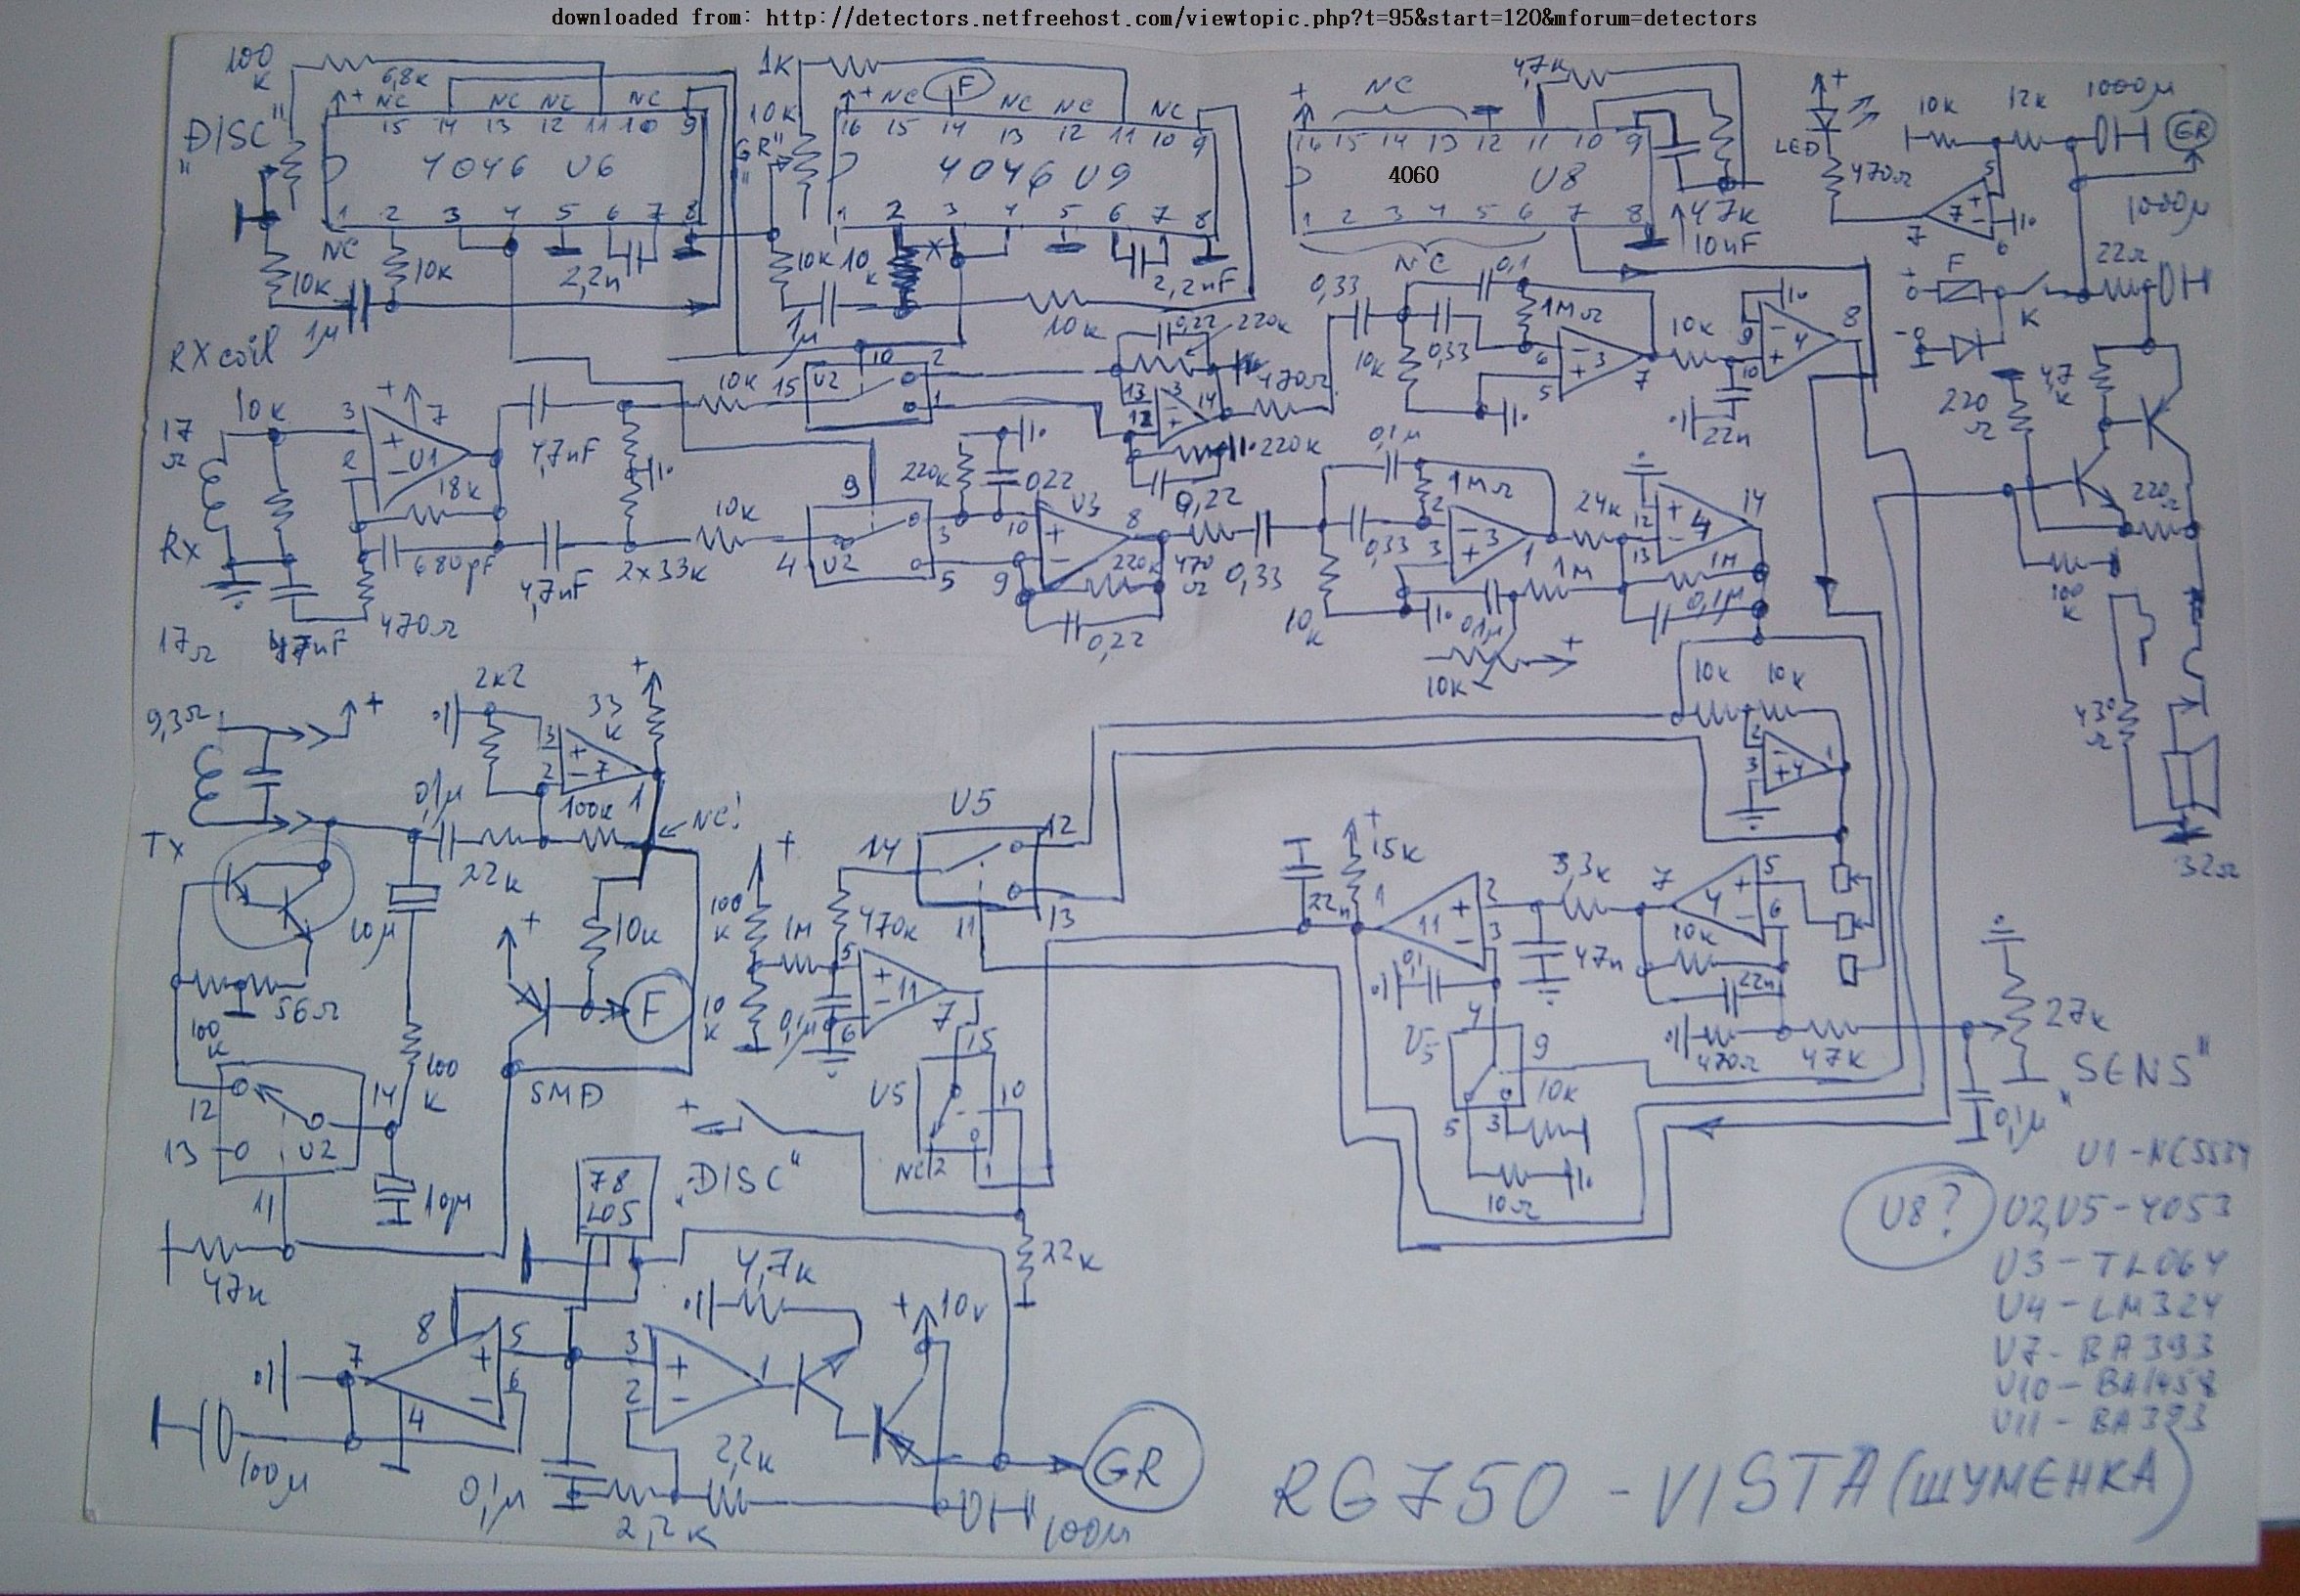 downloaded from: http://detectors.netfreehost.com/viewtopic.php?t=95&start=120&mforum=detectors
100 K
6,8K
"DISC"
+ NC NC NC NC
15 14 13 12 11 10 9
4046 U6
1 2 3 4 5 6 7 8
NC
10K
10K
2,2n
1µ
1K
10K
"GR"
+ NC F NC NC NC
16 15 14 13 12 11 10 9
4046 U9
1 2 3 4 5 6 7 8
10K 10 K
X
2,2nF
1µ
10K
+ NC
47K
16 15 14 13 12 11 10 9
4060 U8
1 2 3 4 5 6 7 8
NC
47K
10nF
+
LED
470Ω
10K 12K 1000µ
GR
1000µ
5 7 6 7
22Ω
+ F
K
-
RX coil
10K
17 Ω
3 7 2
U1
18K
680pF
470Ω
47nF
17Ω
Rx
4,7nF
4,7nF
2x33K
10K 15 U2 10 2 1
10K
9
4 U2 3 5
0,22 220K
13 12 3 14
470Ω
220K
0,22
220K 0,22
10 9 U3 8
220K
0,22
470 Ω
0,33
0,33 0,1
1MΩ
10K 0,33
6 5 3 7
10K
22n
9 10 4 8
0,1µ
1MΩ
0,33
2 3 3 1
10 K
0,1µ
1M
24K
12 13 4 14
1M
0,1µ
10K
+
220 Ω
4,7 K
220Ω
100 K
430 Ω
32Ω
9,3Ω
+
Tx
2K2
33 K
+
3 2 7 1
100K
0,1µ
22K
NC!
10µ
100 K
56Ω
100 K
12 14
13 U2
11
10µ
47K
+
10K
F
SMD
+
100 K
1M
10 K
0,1µ
470K
5 6 11 7
U5
14 12 13 11
15
U5 10
NC 2 1
+
"DISC"
22K
10K 10K
2 3 4 1
+
15K
22n
1 11 2 3
3,3K
47n
0,1
7 4 5 6
10K
22n
470Ω 47K
4
U5 9
5 3
10K
10Ω
27K
"SENS"
0,1µ
78
L05
4,7K
+ 10V
8 5 7 6 4
3 2 1
100µ
0,1µ
2,2K
2,2K
100µ
GR
U8?
U1 - NE5534
U2,U5 - 4053
U3 - TL064
U4 - LM324
U7 - BA393
U10 - BA1458
U11 - BA393
RG750 - VISTA (ШУМЕНКА)